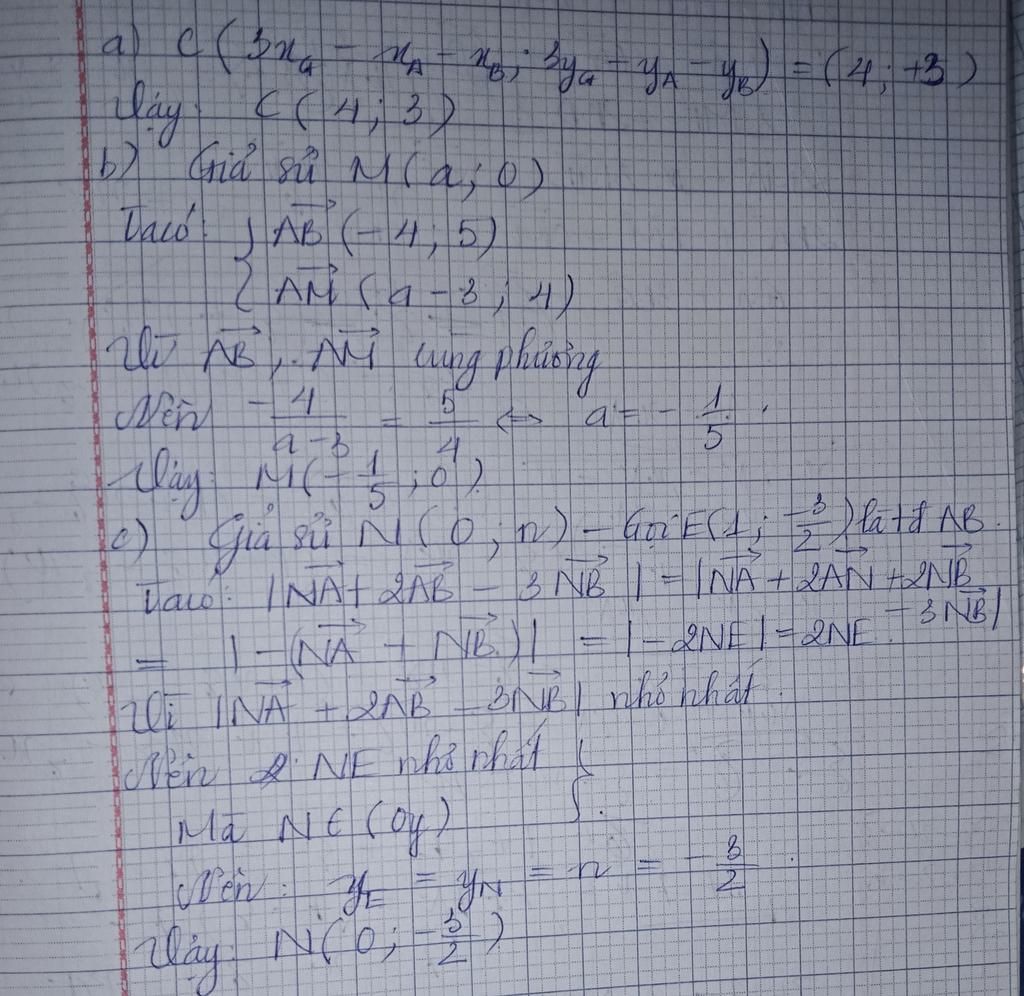 a) C (3x_G - x_A - x_B; 3y_G - y_A - y_B) = (4; +3)
Vậy C(4; 3)
b) Giả sử M(a; 0)
Ta có: { \overrightarrow{AB} (-4; 5)
\overrightarrow{AM} (a-3; 4)
Vì \overrightarrow{AB}, \overrightarrow{AM} cùng phương
Nên -\frac{4}{a-3} = \frac{5}{4} ⇔ a = -\frac{1}{5}.
Vậy M(-\frac{1}{5}; 0).
c) Giả sử N(0; n) - Gọi E(1; \frac{-3}{2}) là tđ AB.
Ta có: |\overrightarrow{NA} + 2\overrightarrow{AB} - 3\overrightarrow{NB}| = |\overrightarrow{NA} + 2\overrightarrow{AN} + 2\overrightarrow{NB}
- 3\overrightarrow{NB}|
= |-(\overrightarrow{NA} + \overrightarrow{NB})| = |-2NE| = 2NE.
Vì |\overrightarrow{NA} + 2\overrightarrow{AB} - 3\overrightarrow{NB}| nhỏ nhất.
Nên 2 NE nhỏ nhất {
Mà N ∈ (Oy)
Nên: y_E = y_N = n = -\frac{3}{2}.
Vậy N(0; -\frac{3}{2})